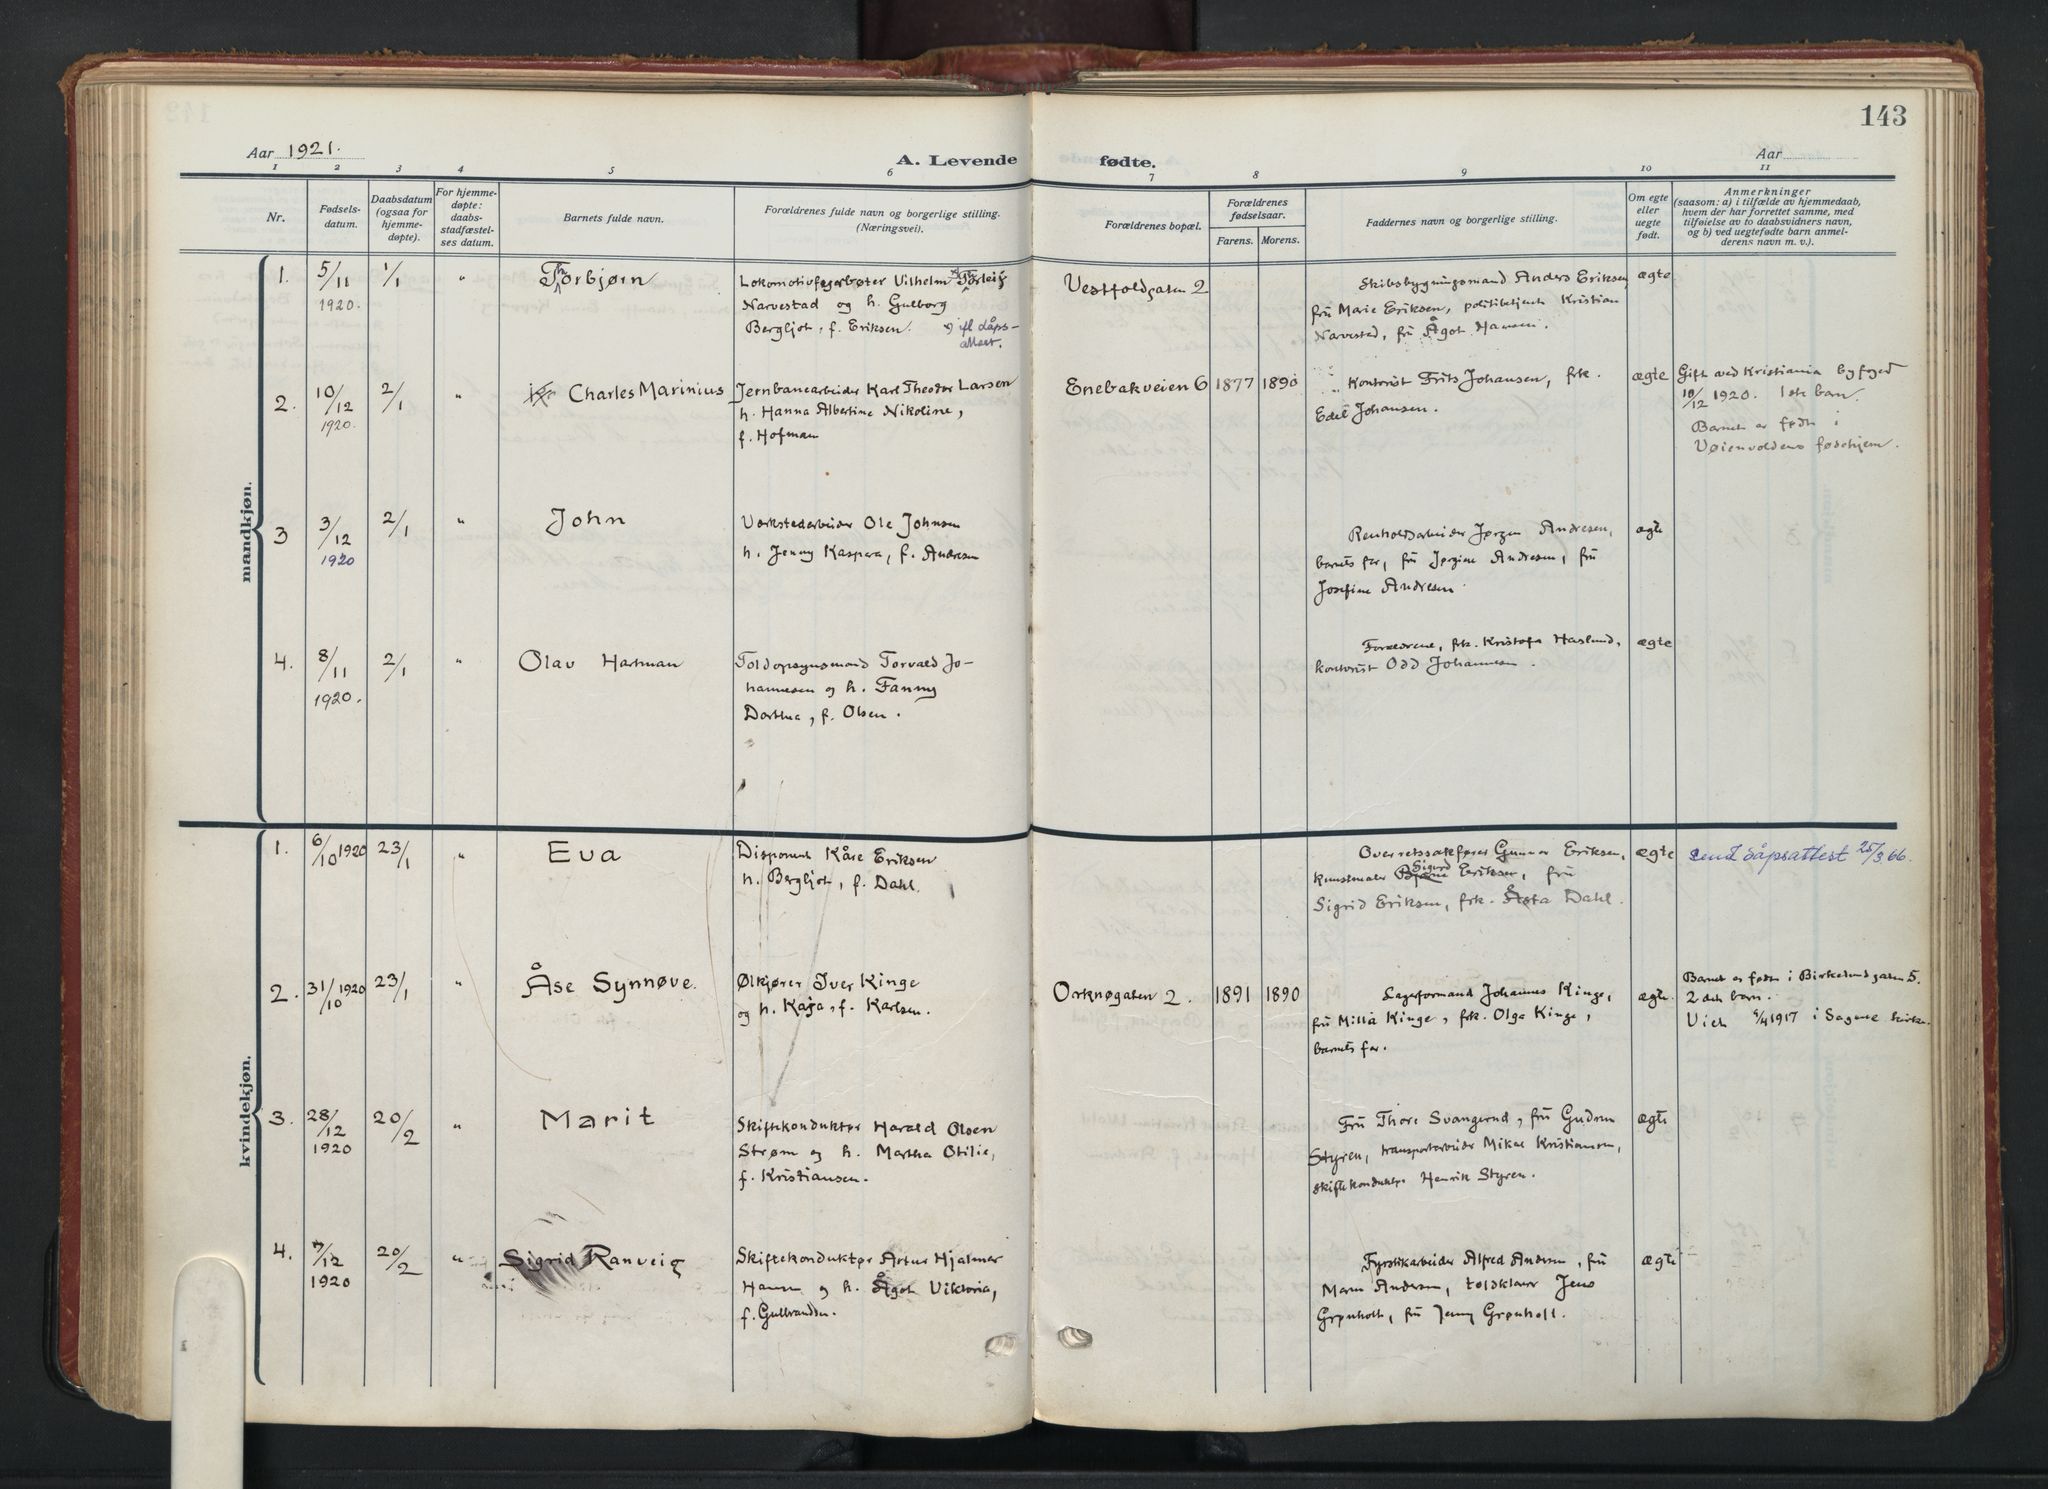 143
Aar 1921.
A. Levende fødte.
Aar
1 2 3 4 5 6 7 8 9 10 11
Nr.
Fødsels-
datum.
Daabsdatum
(ogsaa for
hjemme-
døpte).
For hjemme-
døpte:
daabs-
stadfæstel-
ses datum.
Barnets fulde navn.
Forældrenes fulde navn og borgerlige stilling.
(Næringsvei).
Forældrenes bopæl.
Forældrenes
fødselsaar.
Farens. Morens.
Faddernes navn og borgerlige stilling.
Om egte
eller
uegte
født.
Anmerkninger
(saasom: a) i tilfælde av hjemmedaab,
hvem der har forrettet samme, med
tilføielse av to daabsvidners navn,
og b) ved uegtefødte barn anmel-
derens navn m. v.).
mandkjøn.
1.
5/11
1920.
1/1
"
Thorbjørn
Lokomotivfyrbøter Vilhelm Thorleif
Narvestad og h. Gulborg
Bergljot, f. Eriksen. x) ifl dåps-
attest.
Vestfoldgaten 2
Skibsbygningsmand Anders Eriksen
fru Marie Eriksen, politibetjent Kristian
Narvestad, fru Ågot Hansen.
ægte
2.
10/12
1920.
2/1
"
Charles Marinius
Jernbanearbeider Karl Theodor Larsen
h. Hanna Albertine Nikoline,
f. Hofman
Enebakveien 6
1877
1890
Kontorist Frits Johansen, frk.
Edel Johansen.
ægte
Gift ved Kristiania byfoged
10/12 1920. 1ste barn.
Barnet er født i
Vøienvoldens fødehjem.
3
3/12
1920
2/1
"
John
Verkstedarbeider Ole Johnsen
h. Jenny Kaspara, f. Andresen
Renholdsarbeider Jørgen Andresen,
barnets far, fru Jørgine Andresen, fru
Josefine Andresen.
ægte
4.
8/11
1920.
2/1
"
Olav Hartman
Toldopsynsmand Torvald Jo-
hannesen og h. Fanny
Dorthea, f. Olsen.
Forældrene, frk. Kristofa Haslund,
kontorist Odd Johannesen.
ægte
kvindekjøn.
1.
6/10 1920
23/1
"
Eva
Disponent Kåre Eriksen
h. Bergljot, f. Dahl.
Overretssakfører Gunnar Eriksen,
kunstmaler Bjarne Sigurd Eriksen, fru
Sigrid Eriksen, frk. Åsta Dahl.
ægte
send dåpsattest 25/3 66.
2.
31/10 1920
23/1
"
Åse Synnøve.
Ølkjører Iver Kinge
og h. Kaja, f. Karlsen.
Orknøgaten 2.
1891
1890
Lagerformand Johannes Kinge,
fru Milla Kinge, frk. Olga Kinge,
barnets far.
ægte.
Barnet er født i Birkelundgaten 5.
2det barn.
Viet /4 1917 i Sagene kirke.
3.
28/12
1920
20/2
"
Marit
Skiftekonduktør Harald Olsen
Strøm og h. Martha Otilie,
f. Kristiansen.
Fru Thora Svangerud, fru Gudrun
Styren, transportarbeider Mikal Kristiansen,
skiftekonduktør Henrik Styren.
ægte
4.
7/12
1920
20/2
"
Sigrid Ranveig
Skiftekonduktør Artur Hjalmer
Hansen og h. Ågot Viktoria,
f. Gulbrandsen.
Fyrstikarbeider Alfred Andersen, fru
Maren Andersen, toldklarer Jens
Grønholt, fru Jenny Grønholt.
ægte